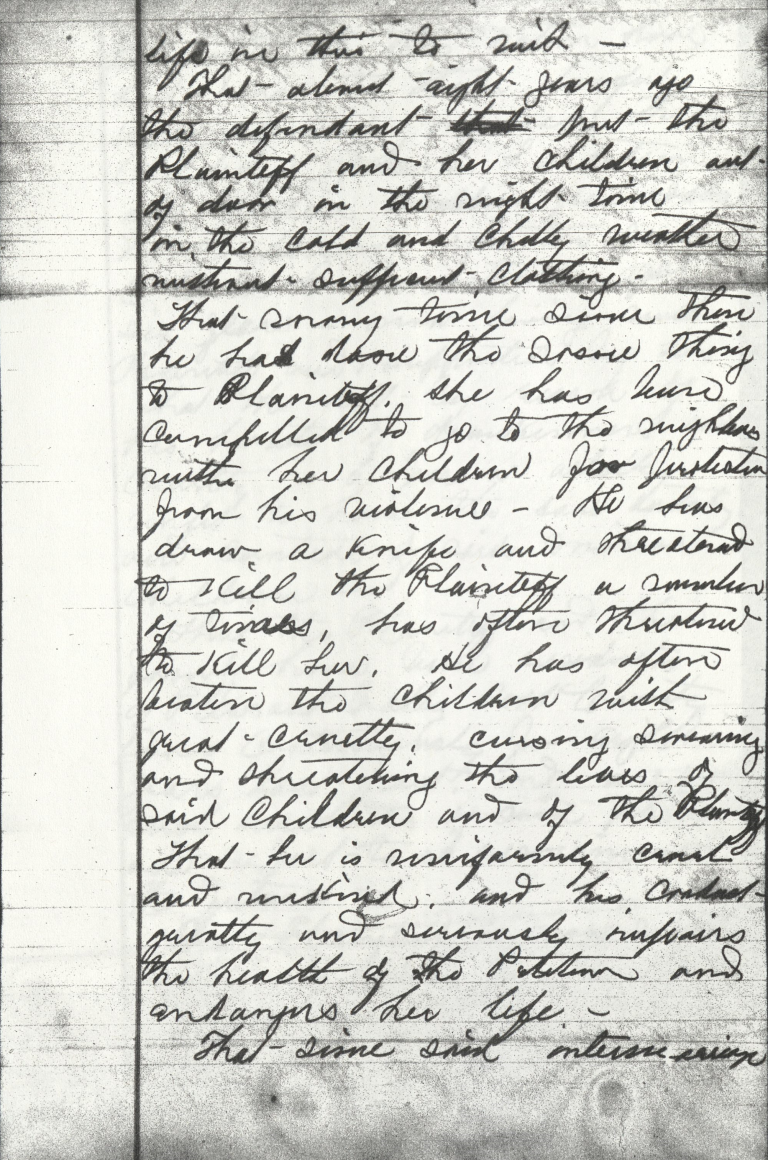 life in this to wit —
That about eight years ago
the defendant ~~that~~ put the
Plaintiff and her Children out
of door in the night time
in the cold and chilly weather
without sufficient clothing -
That many time since then
he had done the same thing
to Plaintiff. She has been
compelled to go to the neighbors
with her Children for protection
from his violence - He has
draw a Knife and threatened
to Kill the Plaintiff a number
of times, has often threatened
to Kill her. He has often
beaten the Children with
great cruelty, cursing swearing
and threatening the lives of
said Children and of the Plaintiff
That he is uniformly cruel
and unkind, and his conduct
greatly and seriously impairs
the health of the Petitioner and
endangers her life -
That since said